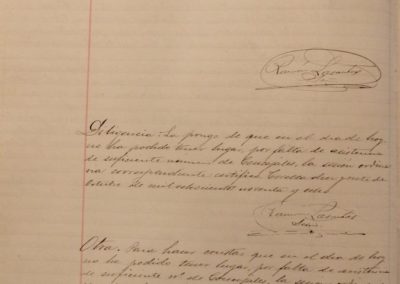 Diligencia: La pongo de que en el dia de hoy
no ha podido tener lugar, por falta de asistencia
de suficiente numero de Concejales, la sesion ordina
ria correspondiente certifico
de mil ochocientos noventa y uno
Otra. Para hacer constar que en el dia de hoy
no ha podido tener lugar, por falta de asistencia
de suficiente nº de Concejales, la sesion